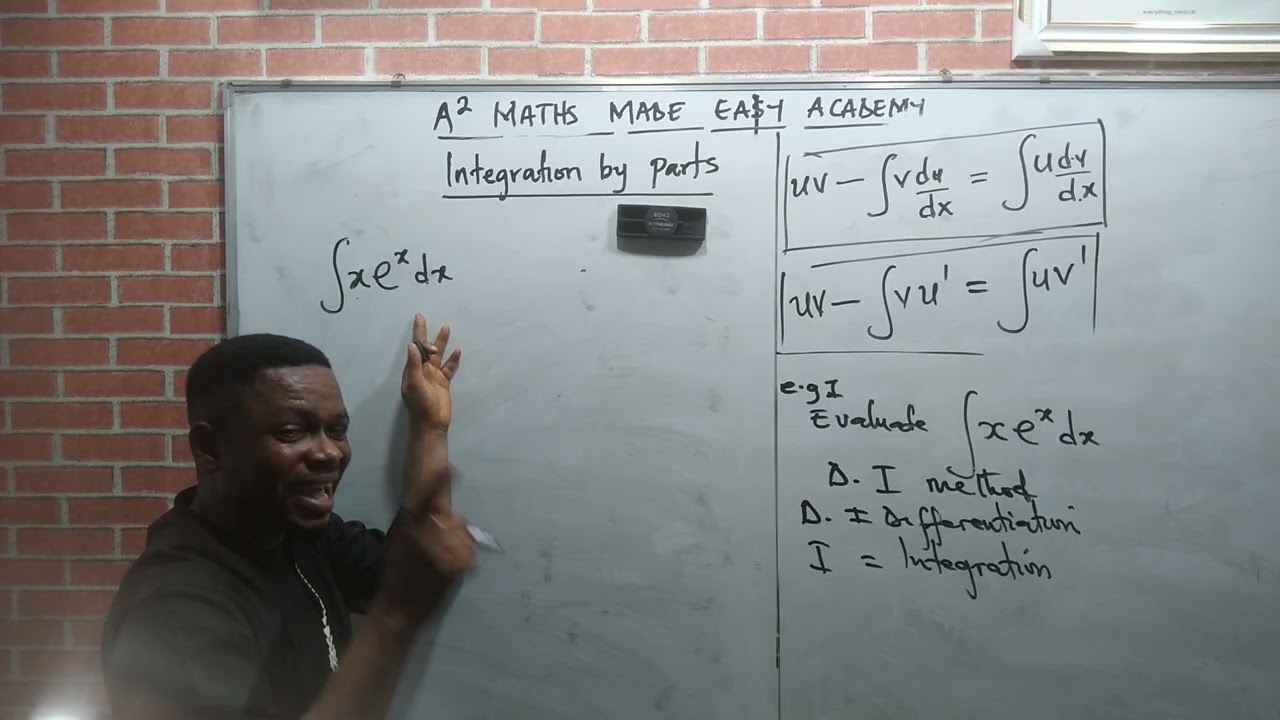 everything_medical
A² MATHS MADE EA$Y ACADEMY
Integration by parts
∫xeˣdx
uv − ∫v du/dx = ∫u dv/dx
uv − ∫vu' = ∫uv'
e.g I
Evaluate ∫xeˣdx
D. I method
D. I Differentiation
I = Integration